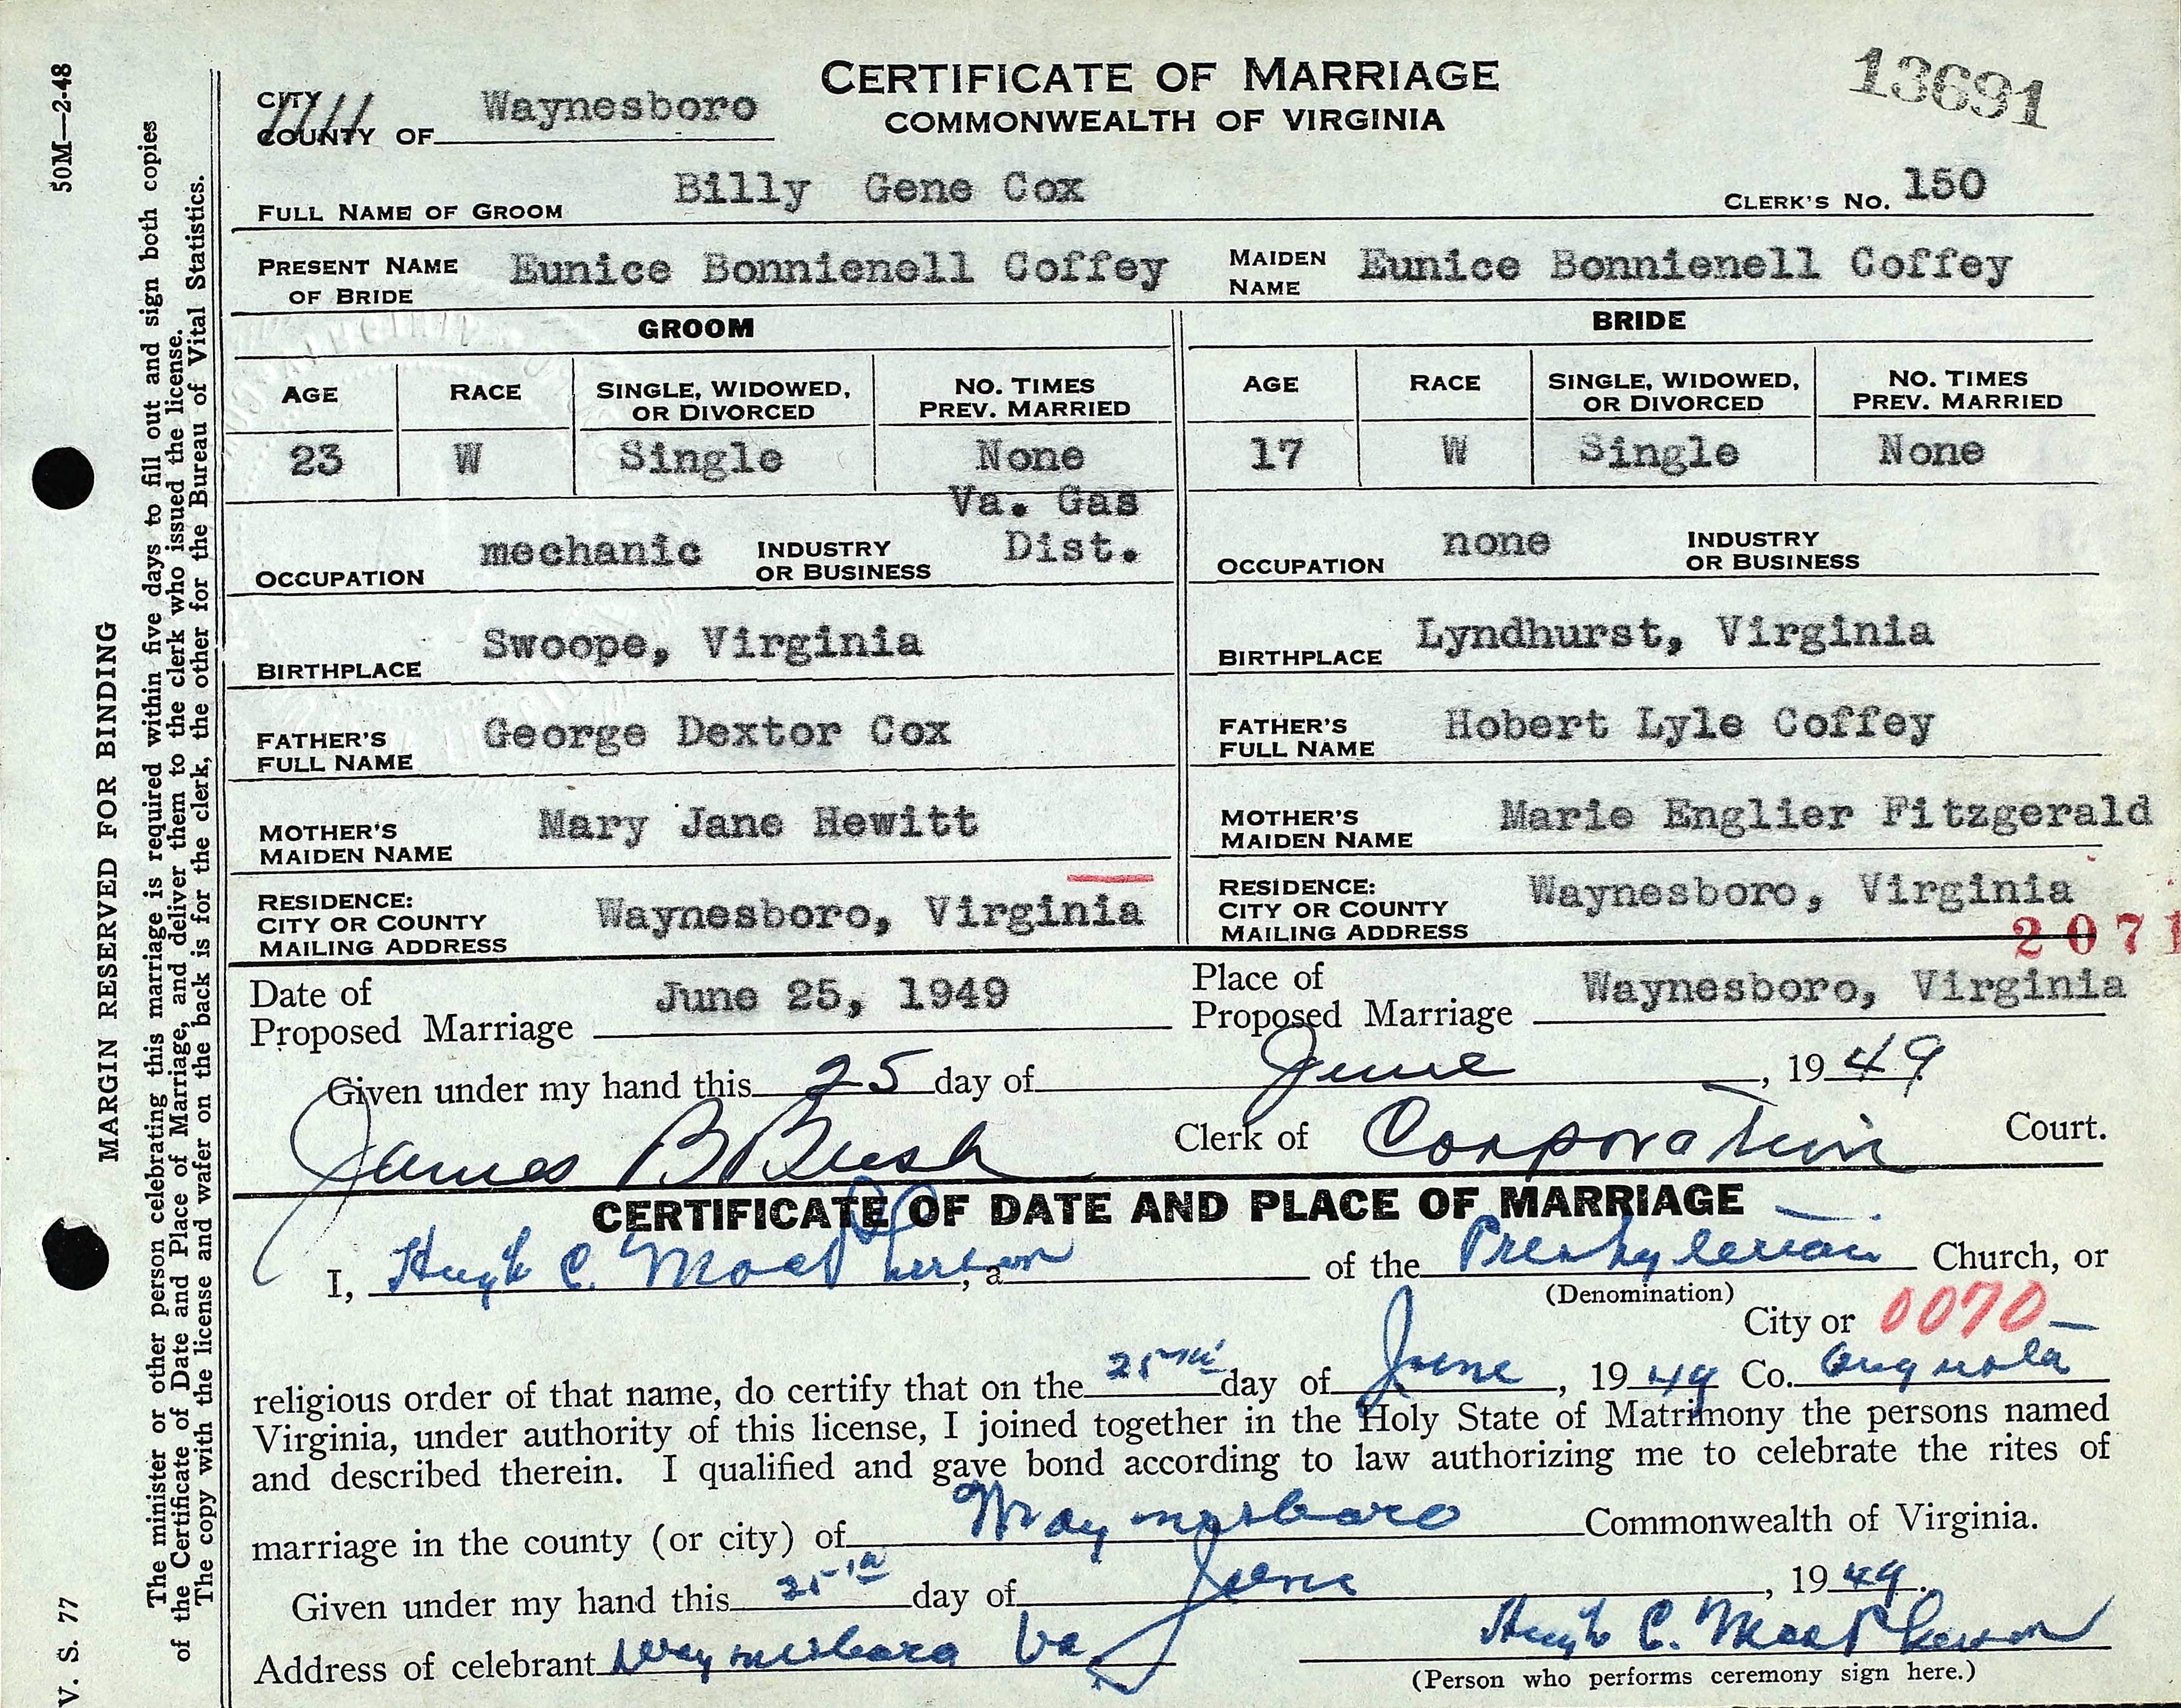 50M—2-48
MARGIN RESERVED FOR BINDING
The minister or other person celebrating this marriage is required within five days to fill out and sign both copies
of the Certificate of Date and Place of Marriage, and deliver them to the clerk who issued the license.
The copy with the license and wafer on the back is for the clerk, the other for the Bureau of Vital Statistics.
V. S. 77
CERTIFICATE OF MARRIAGE
COMMONWEALTH OF VIRGINIA
13691
CITY
COUNTY OF Waynesboro
FULL NAME OF GROOM Billy Gene Cox CLERK'S NO. 150
PRESENT NAME OF BRIDE Eunice Bonnienell Coffey MAIDEN NAME Eunice Bonnienell Coffey
GROOM BRIDE
AGE RACE SINGLE, WIDOWED, OR DIVORCED NO. TIMES PREV. MARRIED AGE RACE SINGLE, WIDOWED, OR DIVORCED NO. TIMES PREV. MARRIED
23 W Single None 17 W Single None
OCCUPATION mechanic INDUSTRY OR BUSINESS Va. Gas Dist. OCCUPATION none INDUSTRY OR BUSINESS
BIRTHPLACE Swoope, Virginia BIRTHPLACE Lyndhurst, Virginia
FATHER'S FULL NAME George Dextor Cox FATHER'S FULL NAME Hobert Lyle Coffey
MOTHER'S MAIDEN NAME Mary Jane Hewitt MOTHER'S MAIDEN NAME Marie Englier Fitzgerald
RESIDENCE: CITY OR COUNTY MAILING ADDRESS Waynesboro, Virginia RESIDENCE: CITY OR COUNTY MAILING ADDRESS Waynesboro, Virginia
2071
Date of Proposed Marriage June 25, 1949 Place of Proposed Marriage Waynesboro, Virginia
Given under my hand this 25 day of June, 1949
James B Bush Clerk of Corporation Court.
CERTIFICATE OF DATE AND PLACE OF MARRIAGE
I, Hugh C. MacPherson, a of the Presbyterian Church, or
(Denomination)
City or 0070
religious order of that name, do certify that on the 25th day of June, 1949 Co. Augusta
Virginia, under authority of this license, I joined together in the Holy State of Matrimony the persons named
and described therein. I qualified and gave bond according to law authorizing me to celebrate the rites of
marriage in the county (or city) of Waynesboro Commonwealth of Virginia.
Given under my hand this 25th day of June, 1949.
Address of celebrant Waynesboro Va Hugh C. MacPherson
(Person who performs ceremony sign here.)